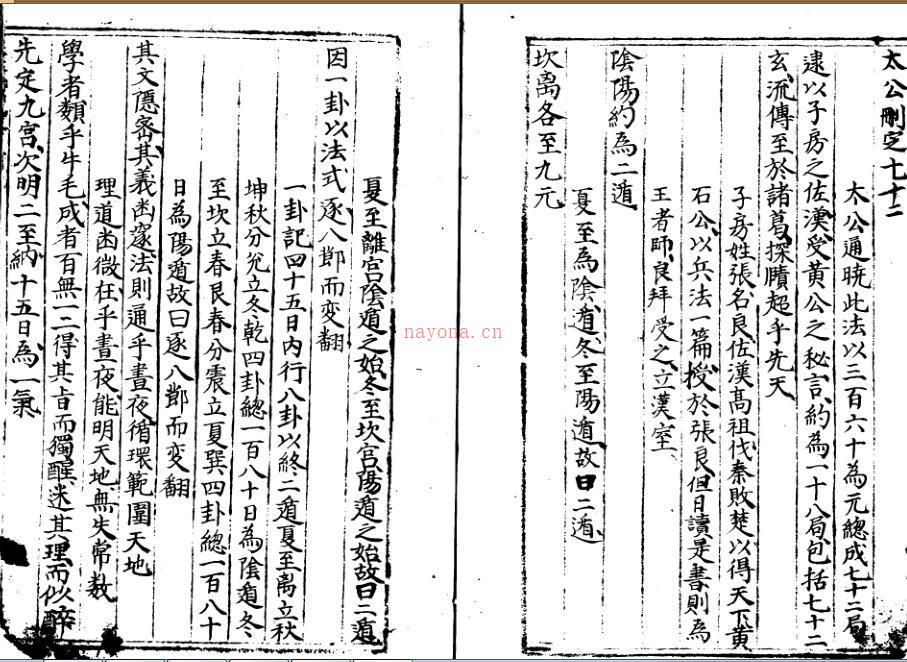 太公刪定七十二
太公通曉此法以三百六十為元總成七十二局
逮以子房之佐漢受黃公之秘言約為一十八局包括七十二
玄流傳至於諸葛探賾超乎先天
子房姓張名良佐漢高祖伐秦敗楚以得天下黃
石公以兵法一篇授於張良但日讀是書則為
王者師良拜受之立漢室
陰陽約為二遁
夏至為陰遁冬至陽遁故曰二遁
坎离各至九元
夏至離宮陰遁之始冬至坎宮陽遁之始故曰二遁
因一卦以法式逐八鄿而变翻
一卦記四十五日內行八卦以終二遁夏至离立秋
坤秋分兊立冬乾四卦總一百八十日為陰遁冬
至坎立春艮春分震立夏巽四卦總一百八十
日為陽遁故曰逐八鄿而变翻
其文隱宻其義幽䆳法則通乎晝夜循環範圍天地
理道幽微在乎晝夜能明天地無失常数
學者類乎牛毛成者百無一二得其旨而獨醒迷其理而似醉
先定九宮次明二至納十五日為一氣
nayona.cn